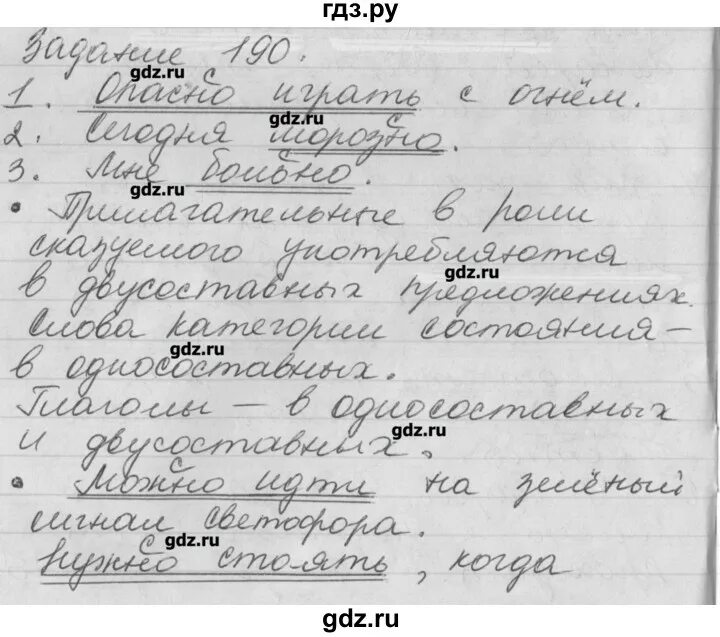 гдз.ру
Задание 190.
gdz.ru
1. Опасно играть с огнём.
gdz.ru
2. Сегодня морозно.
3. Мне больно.
gdz.ru
• Прилагательные в роли
сказуемого употребляются
gdz.ru
в двусоставных предложениях.
Слова категории состояния –
gdz.ru
в односоставных.
Глаголы – в односоставных
gdz.ru
и двусоставных.
• Можно идти на зелёный
gdz.ru
сигнал светофора.
gdz.ru
Нужно стоять, когда
gdz.ru